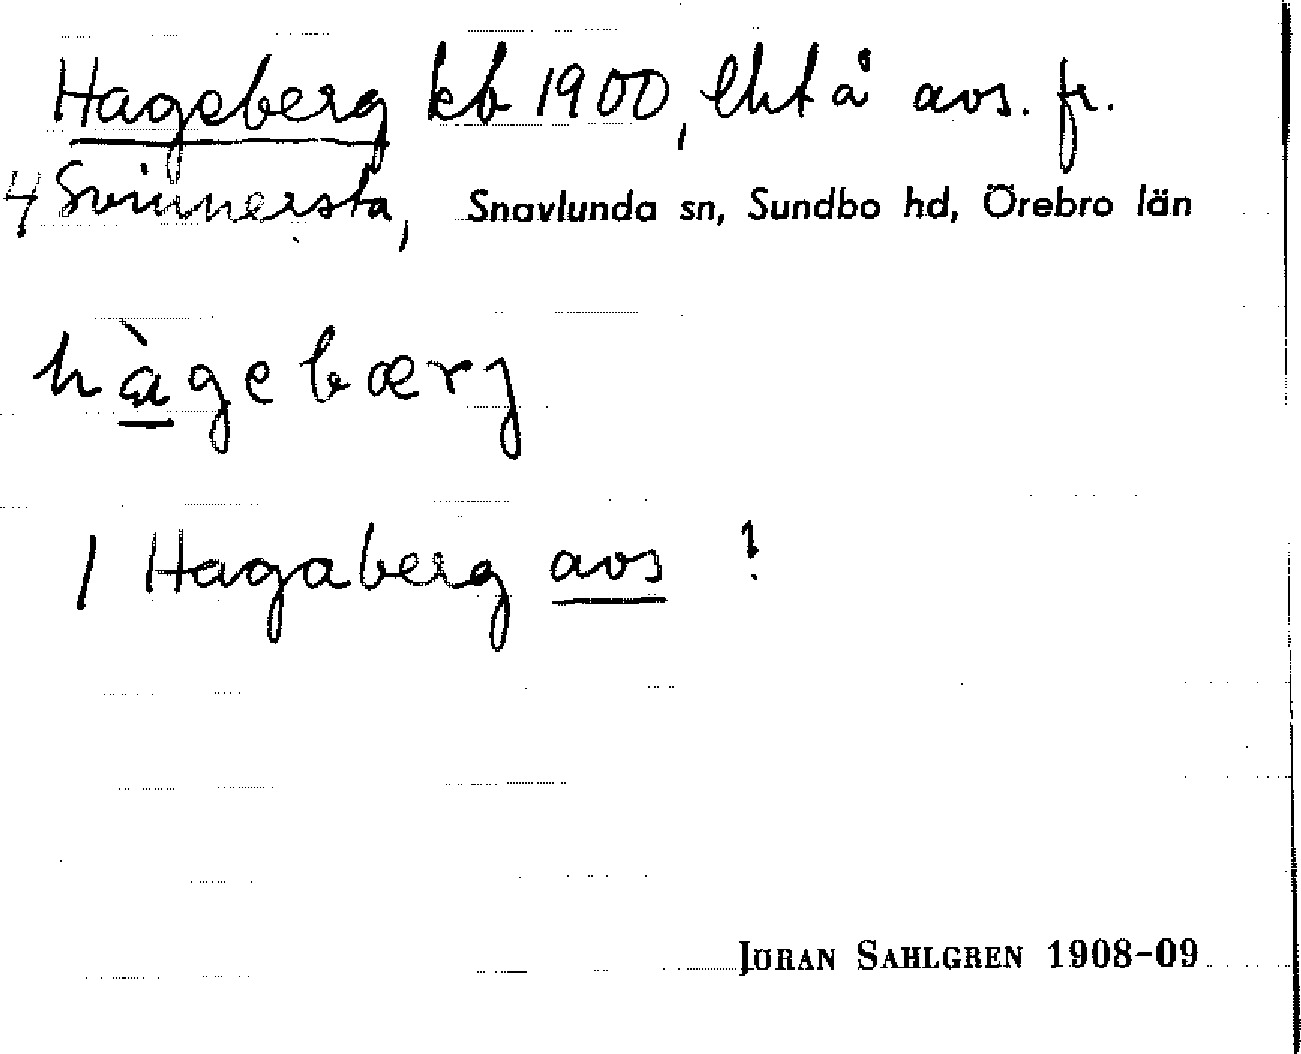 Hageberg kb 1900, lht å avs. fr.
4 Svinnersta, Snavlunda sn, Sundbo hd, Örebro län
hàgebærj
1 Hagaberg avs !
JÖRAN SAHLGREN 1908-09